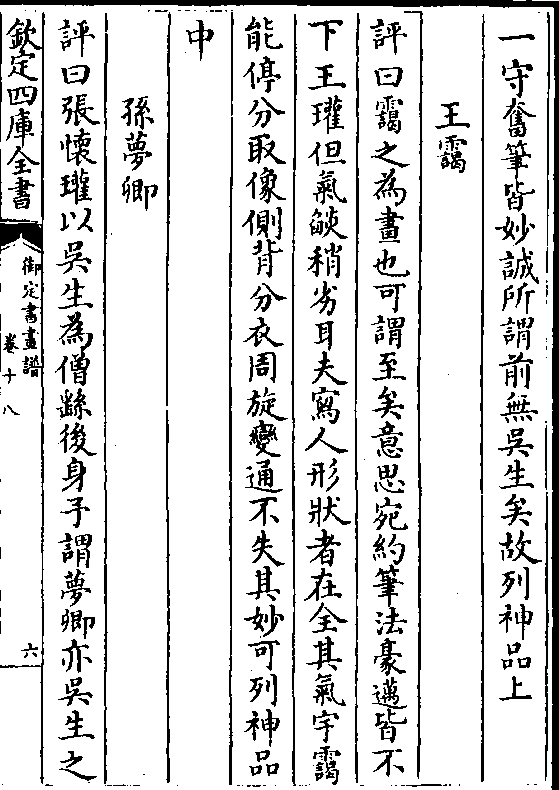 一守奮筆皆妙誠所謂前無吳生矣故列神品上
王靄
評曰靄之為畫也可謂至矣意思宛約筆法豪邁皆不
下王瓘但氣燄稍劣耳夫寫人形狀者在全其氣宇靄
能停分取像側背分衣周旋變通不失其妙可列神品
中
孫夢卿
評曰張懷瓘以吳生為僧繇後身予謂夢卿亦吳生之
欽定四庫全書
御定書畫譜
卷十八
六